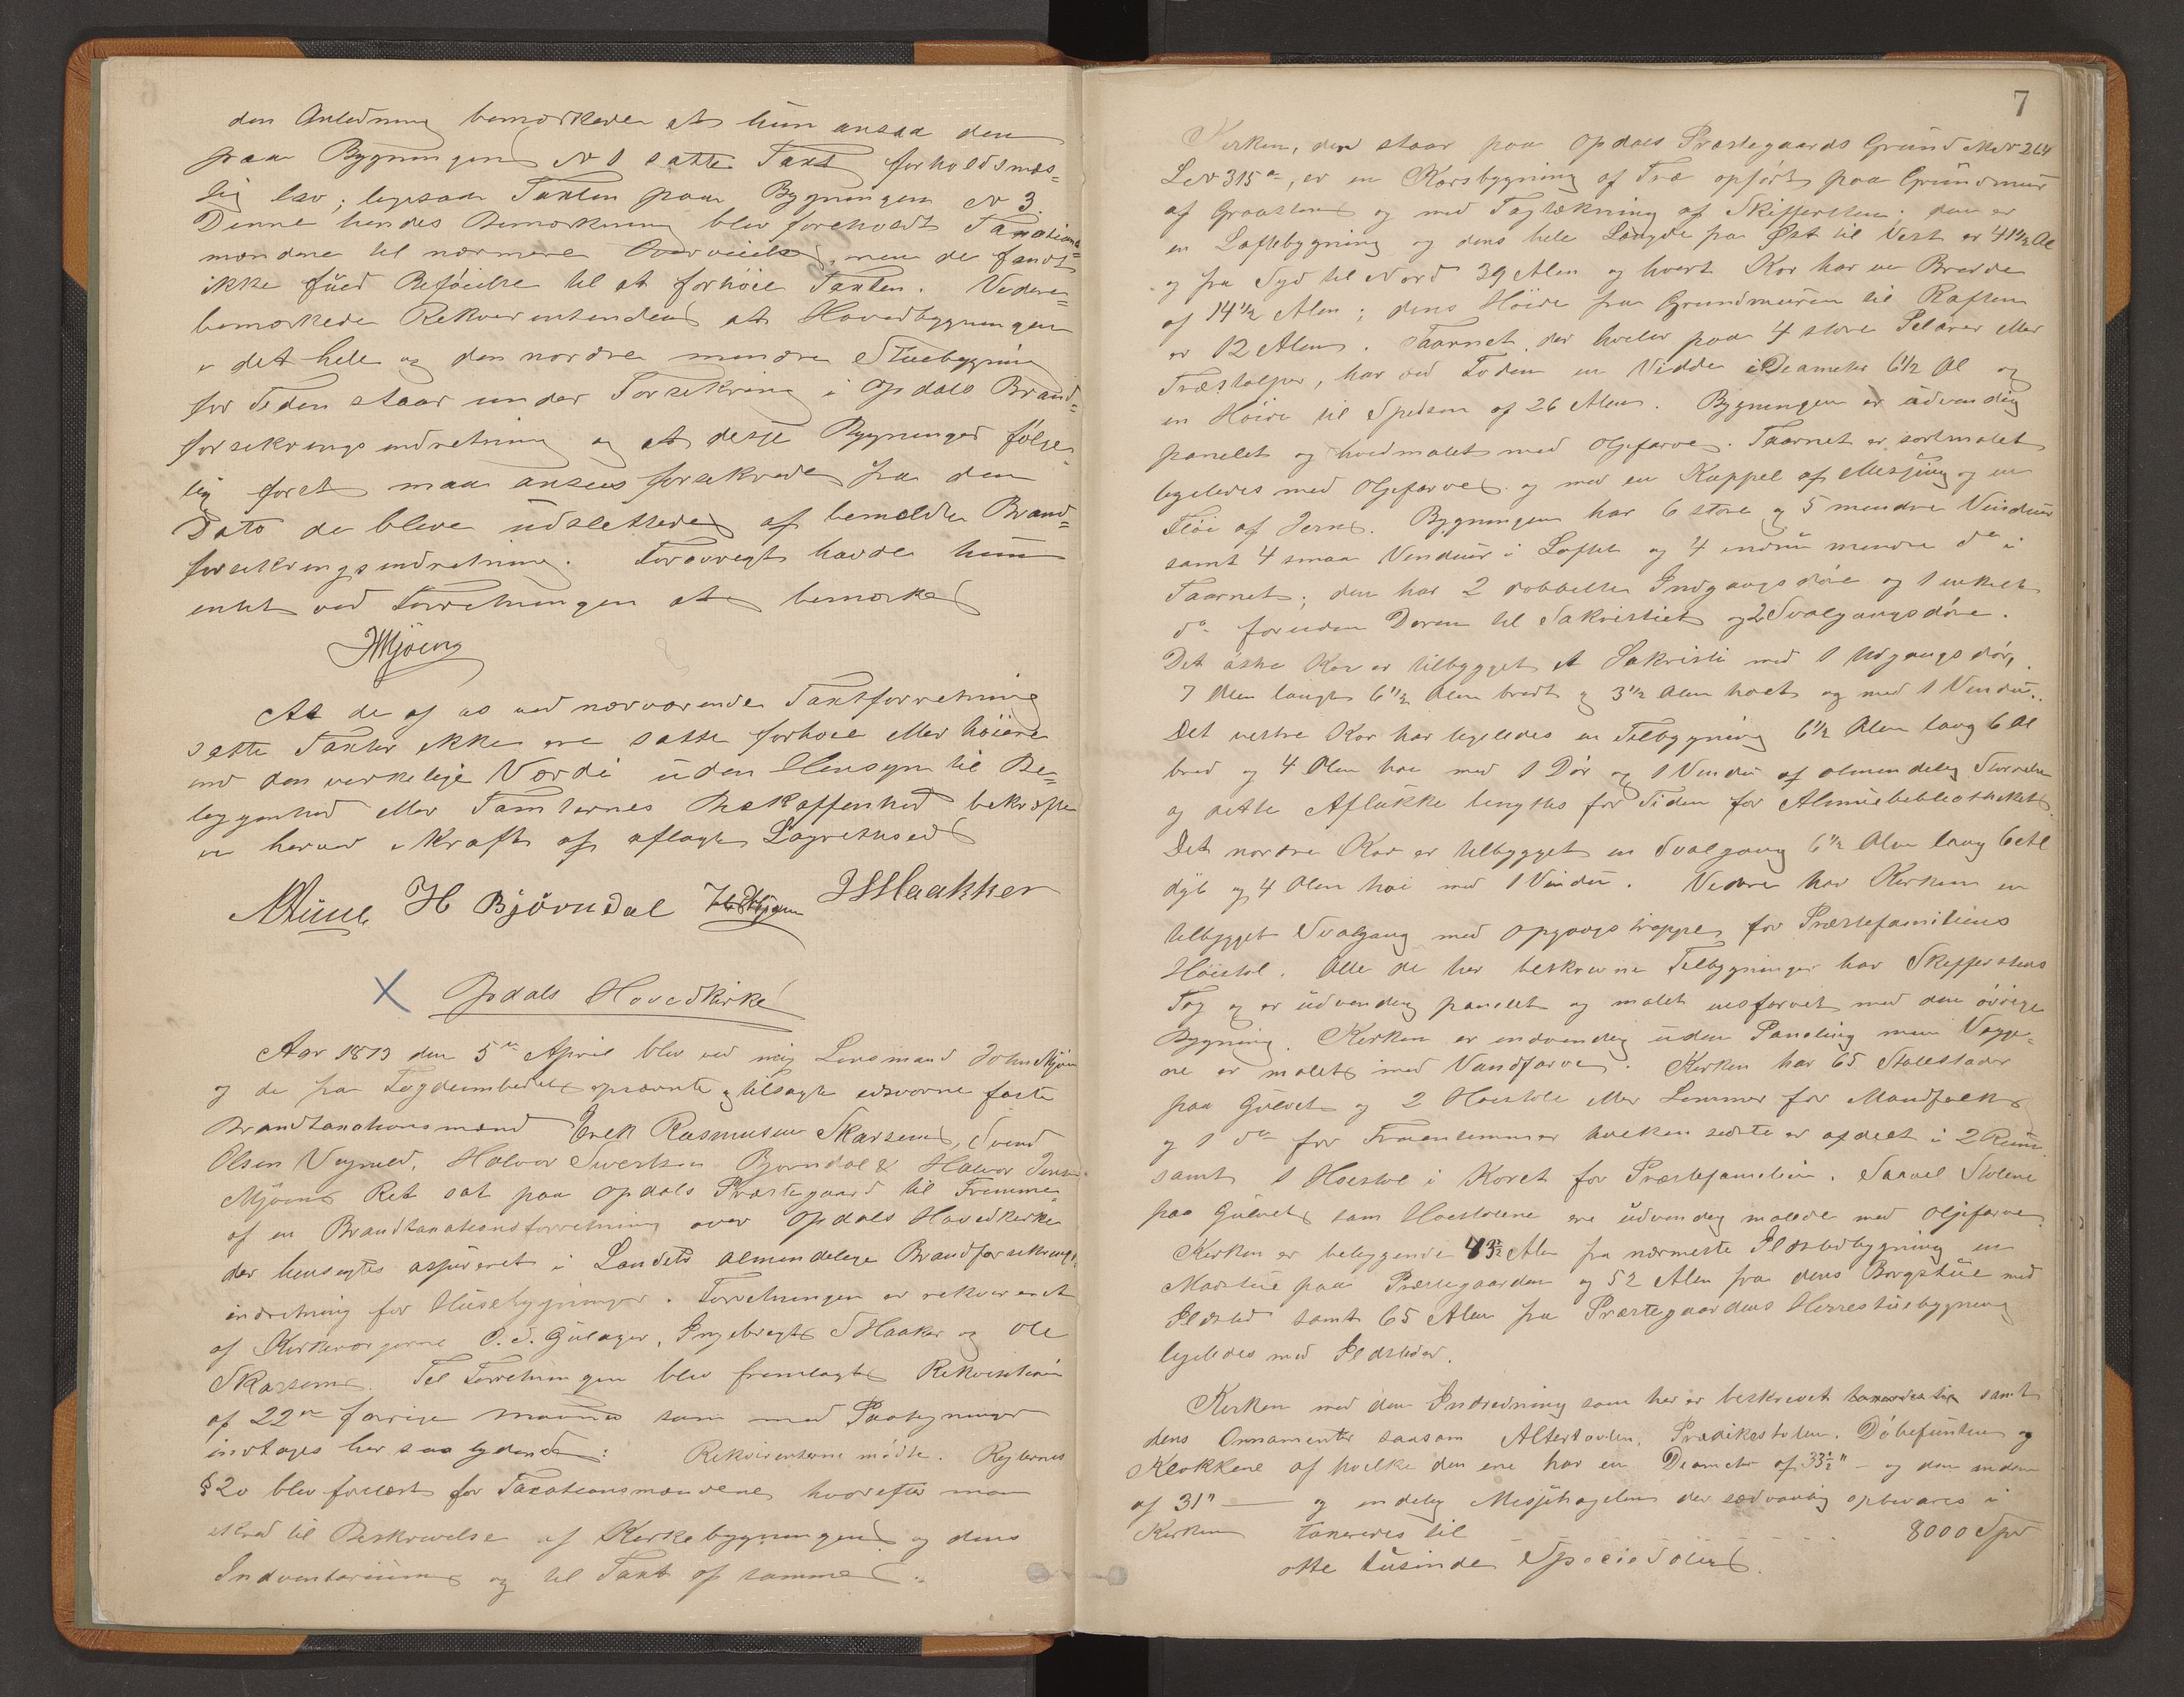 den Anledning bemærkede at hun ansaa den
paa Bygningen N 1 satte Taxt forholdsmæs=
sig lav; ligesaa Taxten paa Bygningen N 3.
Denne hendes Bemærkning blev foreholdt Taxations=
mændene til nærmere Overveielse, men de fandt
ikke füld Beföielse til at forhöie Taxten. Videre
bemærkede Rekvirentinden at Hovedbygningen
i det hele og den nordre mindre Stuebygning
for Tiden staar under Forsikring i Opdals Brand=
forsikringsindretning og at disse Bygninger fölge=
lig först maa ansees forsikrede fra den
Dato de bleve üdslettede af bemeldte Brand=
forsikringsindretning. Forövrigt havde hün
intet ved Forretningen at bemærke
JMjöeng
At de af os ved nærværende Taxtforretning
satte Taxter ikke ere satte forhöie eller höiere
end den virkelige Værdi üden Hensyn til Be=
liggenhed eller Tomternes Beskaffenhed bekræfte
vi herved i Kraft af aflagt Lagretteseed
H Bjørndal JSHaakker
X Opdals Hovedkirke
Aar 1873 den 5te April blev ved mig Lensmand John Mjöen
og de fra Fogdeembedet opnævnte og tilsagte edsvorne faste
Brandtaxationsmænd Erek Rasmusen Skarsem, Svend
Olsen Vognild, Halvor Sivertsen Bjørndal & Halvor Jensen
Mjöens Ret sat paa Opdals Præstegaard til Fremme
af en Brandtaxationsforretning over Opdals Hovedkirke
der hensigtes assüreret i Landets almindelige Brandforsikrings
indretning for Hüsebygninger. Forretningen er rekvireret
af Kirkeværgerne O. J. Gulager, Ingebregt SHaaker og Ole
Skarsem. Til Forretningen blev fremlagt Rekvisition
af 22de forrige Maaned som med Paategninger
indtages her saa lydende: Rekvirenterne mödte. Reglernes
§ 20 blev forelæst for Taxationsmændene hvorefter man
skred til Beskrivelse af Kirkebygningen og dens
Indventarium og til Taxt af samme.
7
Kirken, der staar paa Opdals Præstegaards Grund MN 264
LN 315 a, er en Korsbygning af Træ opfört paa Gründmür
af Graasten og med Tagtækning af Skiffersten; den er
en Loftebygning og dens hele Længde fra Øst til Vest er 41½ Al
og fra Syd til Nord 39 Alen og hvert Kor har en Brædde
af 14½ Alen; dens Höide fra Grundmüren til Raften
er 12 Alen. Taarnet, der hviler paa 4 store Pilarer eller
Træstolper, har ved Foden en Vidde i Diameter 6½ Al og
en Höide til Spidsen af 26 Alen. Bygningen er üdvendig
panelet og hvidmalet med Oljefarve. Taarnet er sortmalet
ligeledes med Oljefarve og med en Kuppel af Messing og en
Flöi af Jern. Bygningen har 6 store og 5 mindre Vindüer
samt 4 smaa Vindüer i Loftet og 4 endnü mindre do i
Taarnet; den har 2 dobbelte Indgangsdöre og 1 enkelt
do foruden Dören til Sakristiet og 2 Svalgangsdöre.
Det östre Kor er tilbygget et Sakristi med 1 Udgangsdör,
7 Alen langt 6½ Alen bredt og 3½ Alen höit og med 1 Vindü.
Det vestre Kor har ligeledes en Tilbygning 6½ Alen lang 6 Al
bred og 4 Alen höi med 1 Dör og 1 Vindü af almindelig Störrelse
og dette Aflükke benyttes for Tiden for Almuebibliotheket.
Det nordre Kor er tilbygget en Svalgang 6½ Alen lang 6 Al
dyb og 4 Alen höi med 1 Vindü. Videre har Kirken en
tilbygget Svalgang med Opgangstrappe for Præstefamiliens
Höistol. Alle de her beskrevne Tilbygninger har Skifferstens
Tag og er üdvendig panelet og malet ensfarvet med den övrige
Bygning. Kirken er indvendig üden Paneling men Vægge-
ne er malet med Vandfarve. Kirken har 65 Stolestader
paa Gülvet og 2 Höistole eller Lemmer for Mandfolk
og 1 do for Fruentimmer hvilken sidste er afdelt i 2 Rüm
samt 1 Höistol i Koret for Præstefamilien. Saavel Stolene
paa Gülvet som Höistolene ere üdvendig malede med Oljefarve
Kirken er beliggende 43½ Alen fra nærmeste Ildstedbygning en
Mastüe paa Præstegaarden og 52 Alen fra dens Borgstüe med
Ildsted samt 65 Alen fra Præstegaardens Herrestüebygning
ligeledes med Ildsteder.
Kirken med den Indredning som her er beskrevet samt
dens Ornamenter saasom Altertavlen, Prædikestolen, Döbefunten og
Klokkene af hvilke den ene har en Diameter af 33½" og den anden
af 31" — og endelig Messehagelen der sædvanlig opbevares i
Kirken taxeredes til - - - 8000 Spd
otte tusinde Speciedaler.